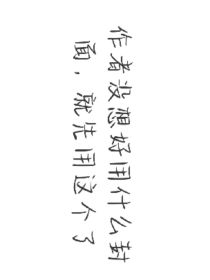 作者没想好用什么封
面，就先用这个了